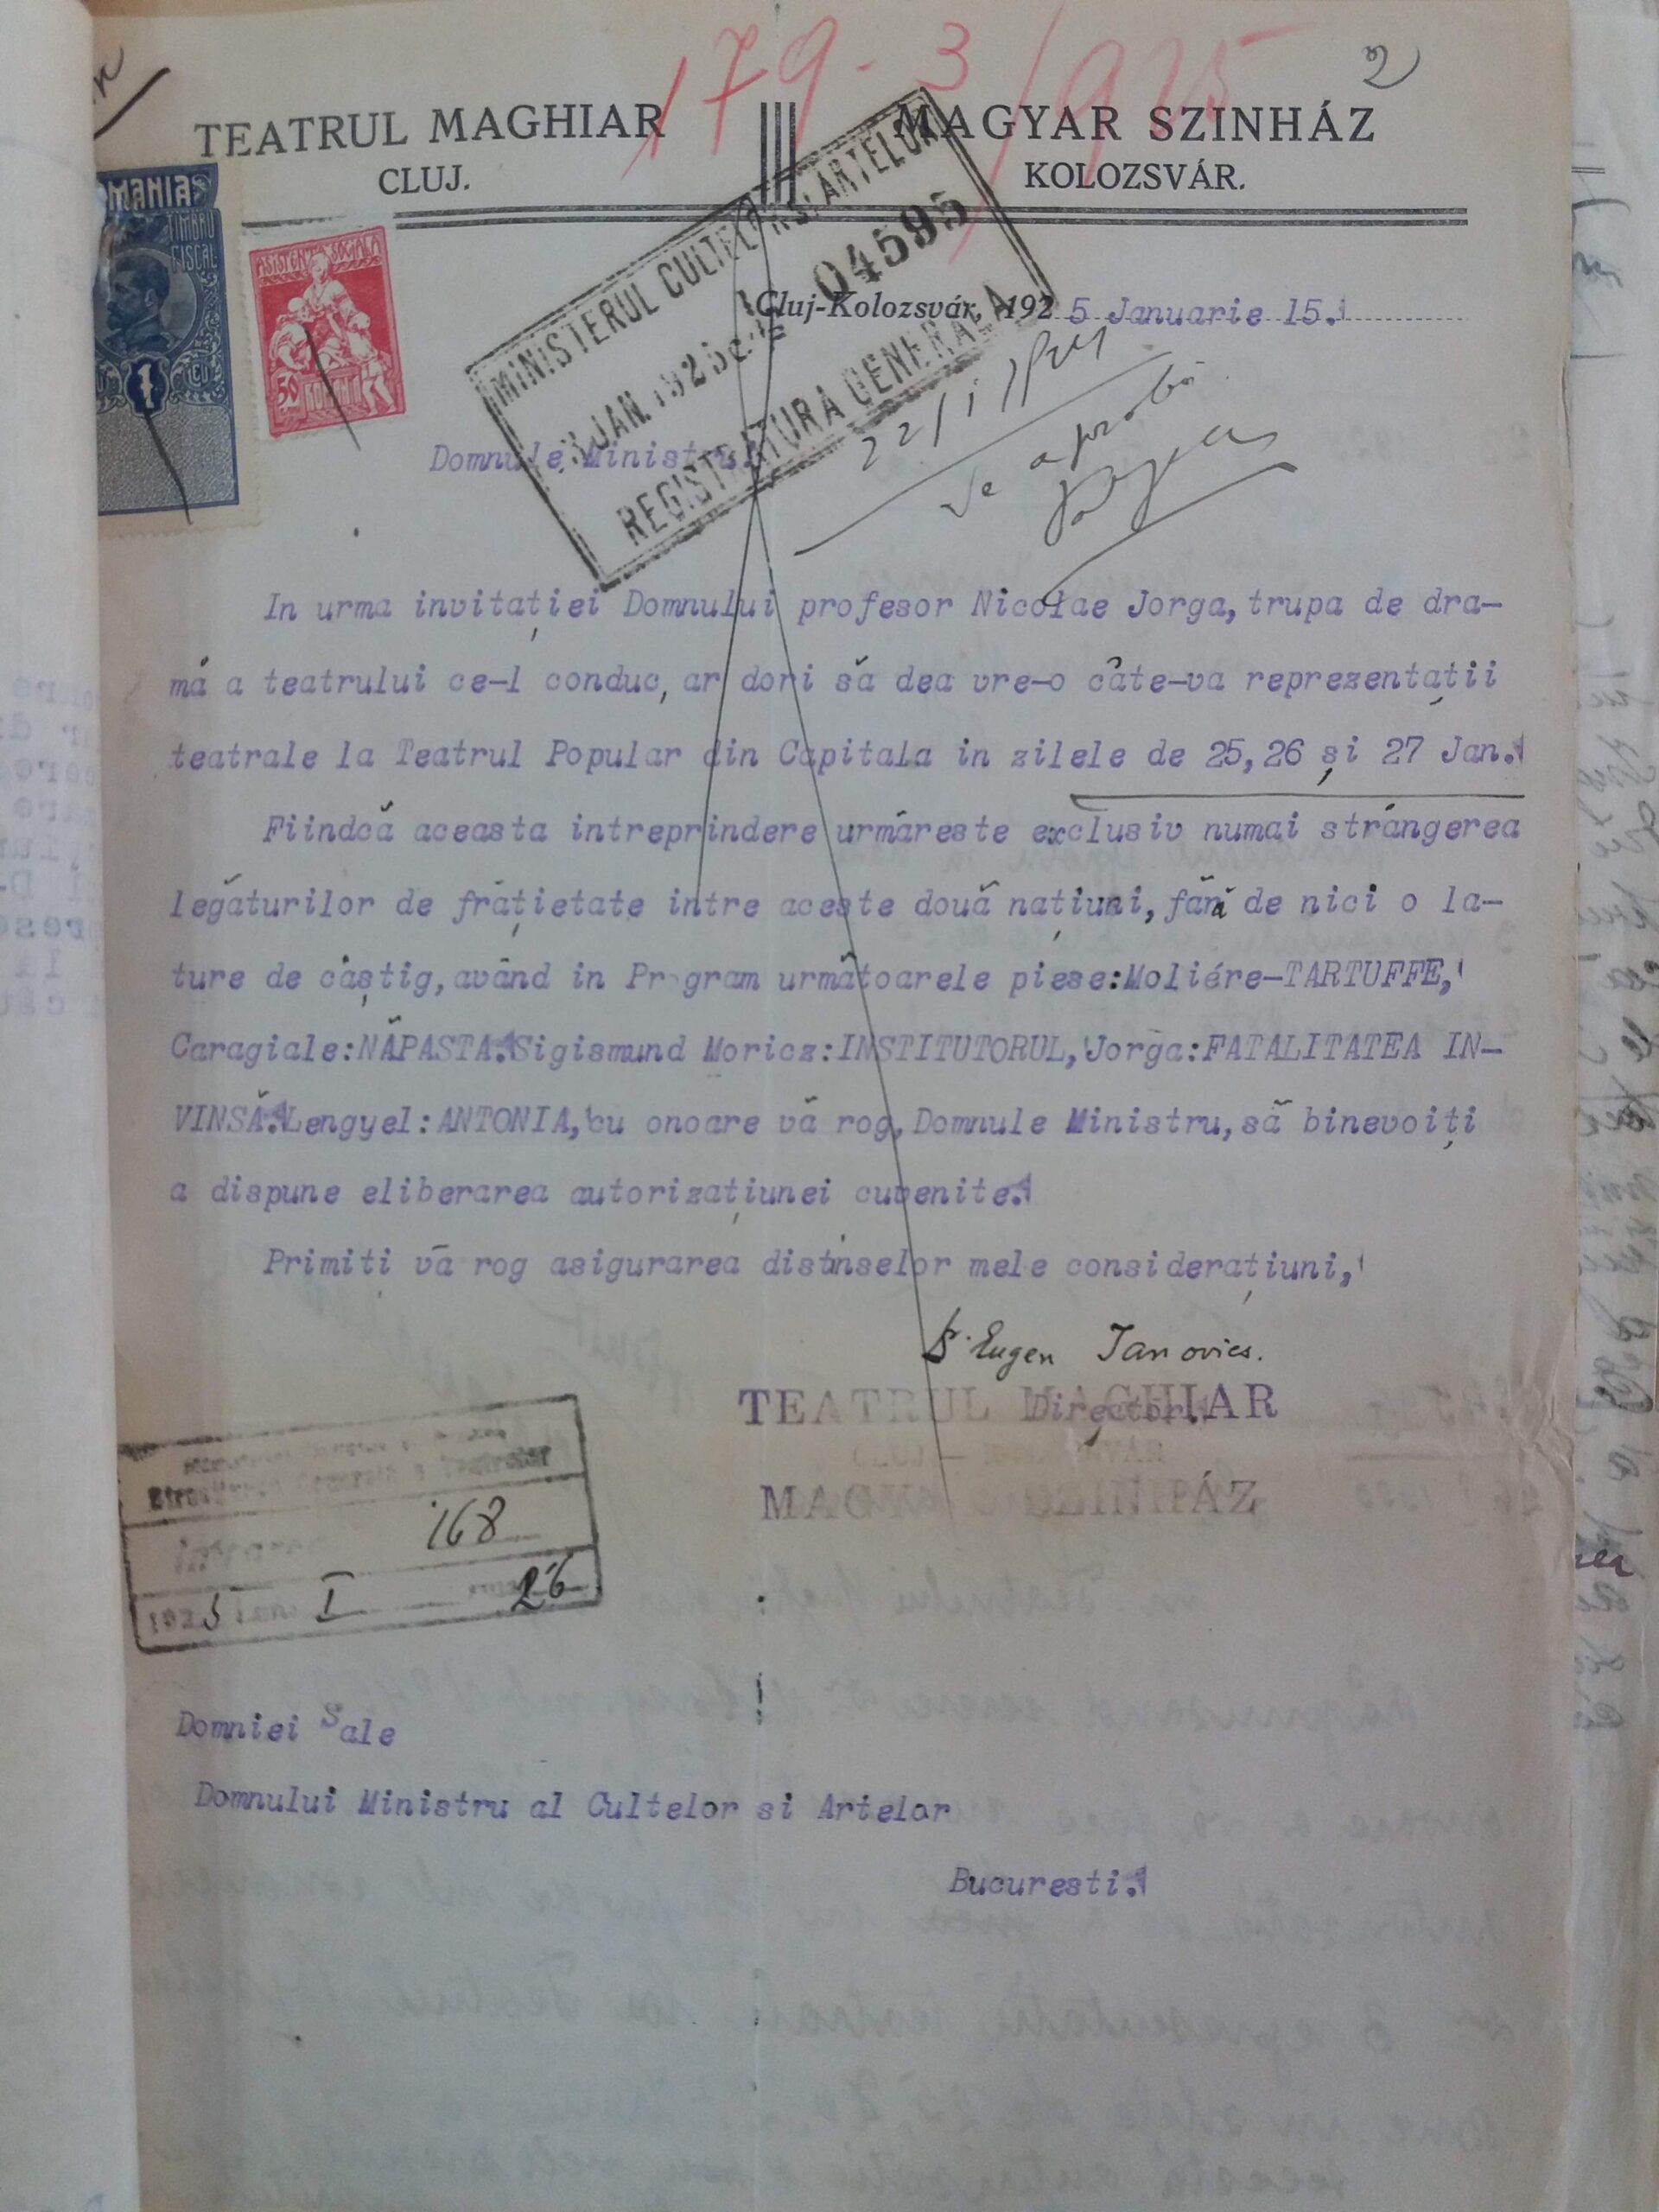 179-3/925
2
TEATRUL MAGHIAR
CLUJ.
MAGYAR SZINHÁZ
KOLOZSVÁR.
ROMANIA
TIMBRU
FISCAL
1
ASISTENȚA SOCIALA
50
ROMANIA
MINISTERUL CULTELOR SI ARTELOR
JAN. 1925 04595
REGISTRATURA GENERALA
Cluj-Kolozsvár, 1925 Januarie 15.
22/I
Se aprobă
Domnule Ministru
In urma invitației Domnului profesor Nicolae Jorga, trupa de dra-
mă a teatrului ce-l conduc, ar dori să dea vre-o câte-va reprezentații
teatrale la Teatrul Popular din Capitala in zilele de 25, 26 și 27 Jan.
Fiindcă aceasta intreprindere urmăreste exclusiv numai strángerea
legăturilor de frățietate intre aceste două națiuni, fără de nici o la-
ture de câștig, având in Program următoarele piese: Moliére-TARTUFFE,
Caragiale: NĂPASTA. Sigismund Moricz: INSTITUTORUL, Jorga: FATALITATEA IN-
VINSĂ. Lengyel: ANTONIA, cu onoare vă rog, Domnule Ministru, să binevoiți
a dispune eliberarea autorizațiunei cuvenite.
Primiti vă rog asigurarea distinselor mele considerațiuni,
Dr Eugen Janovics.
TEATRUL MAGHIAR
Director.
CLUJ — KOLOZSVÁR
MAGYAR SZINHÁZ
168
1925 I 26
Domniei Sale
Domnului Ministru al Cultelor si Artelor
Bucuresti.